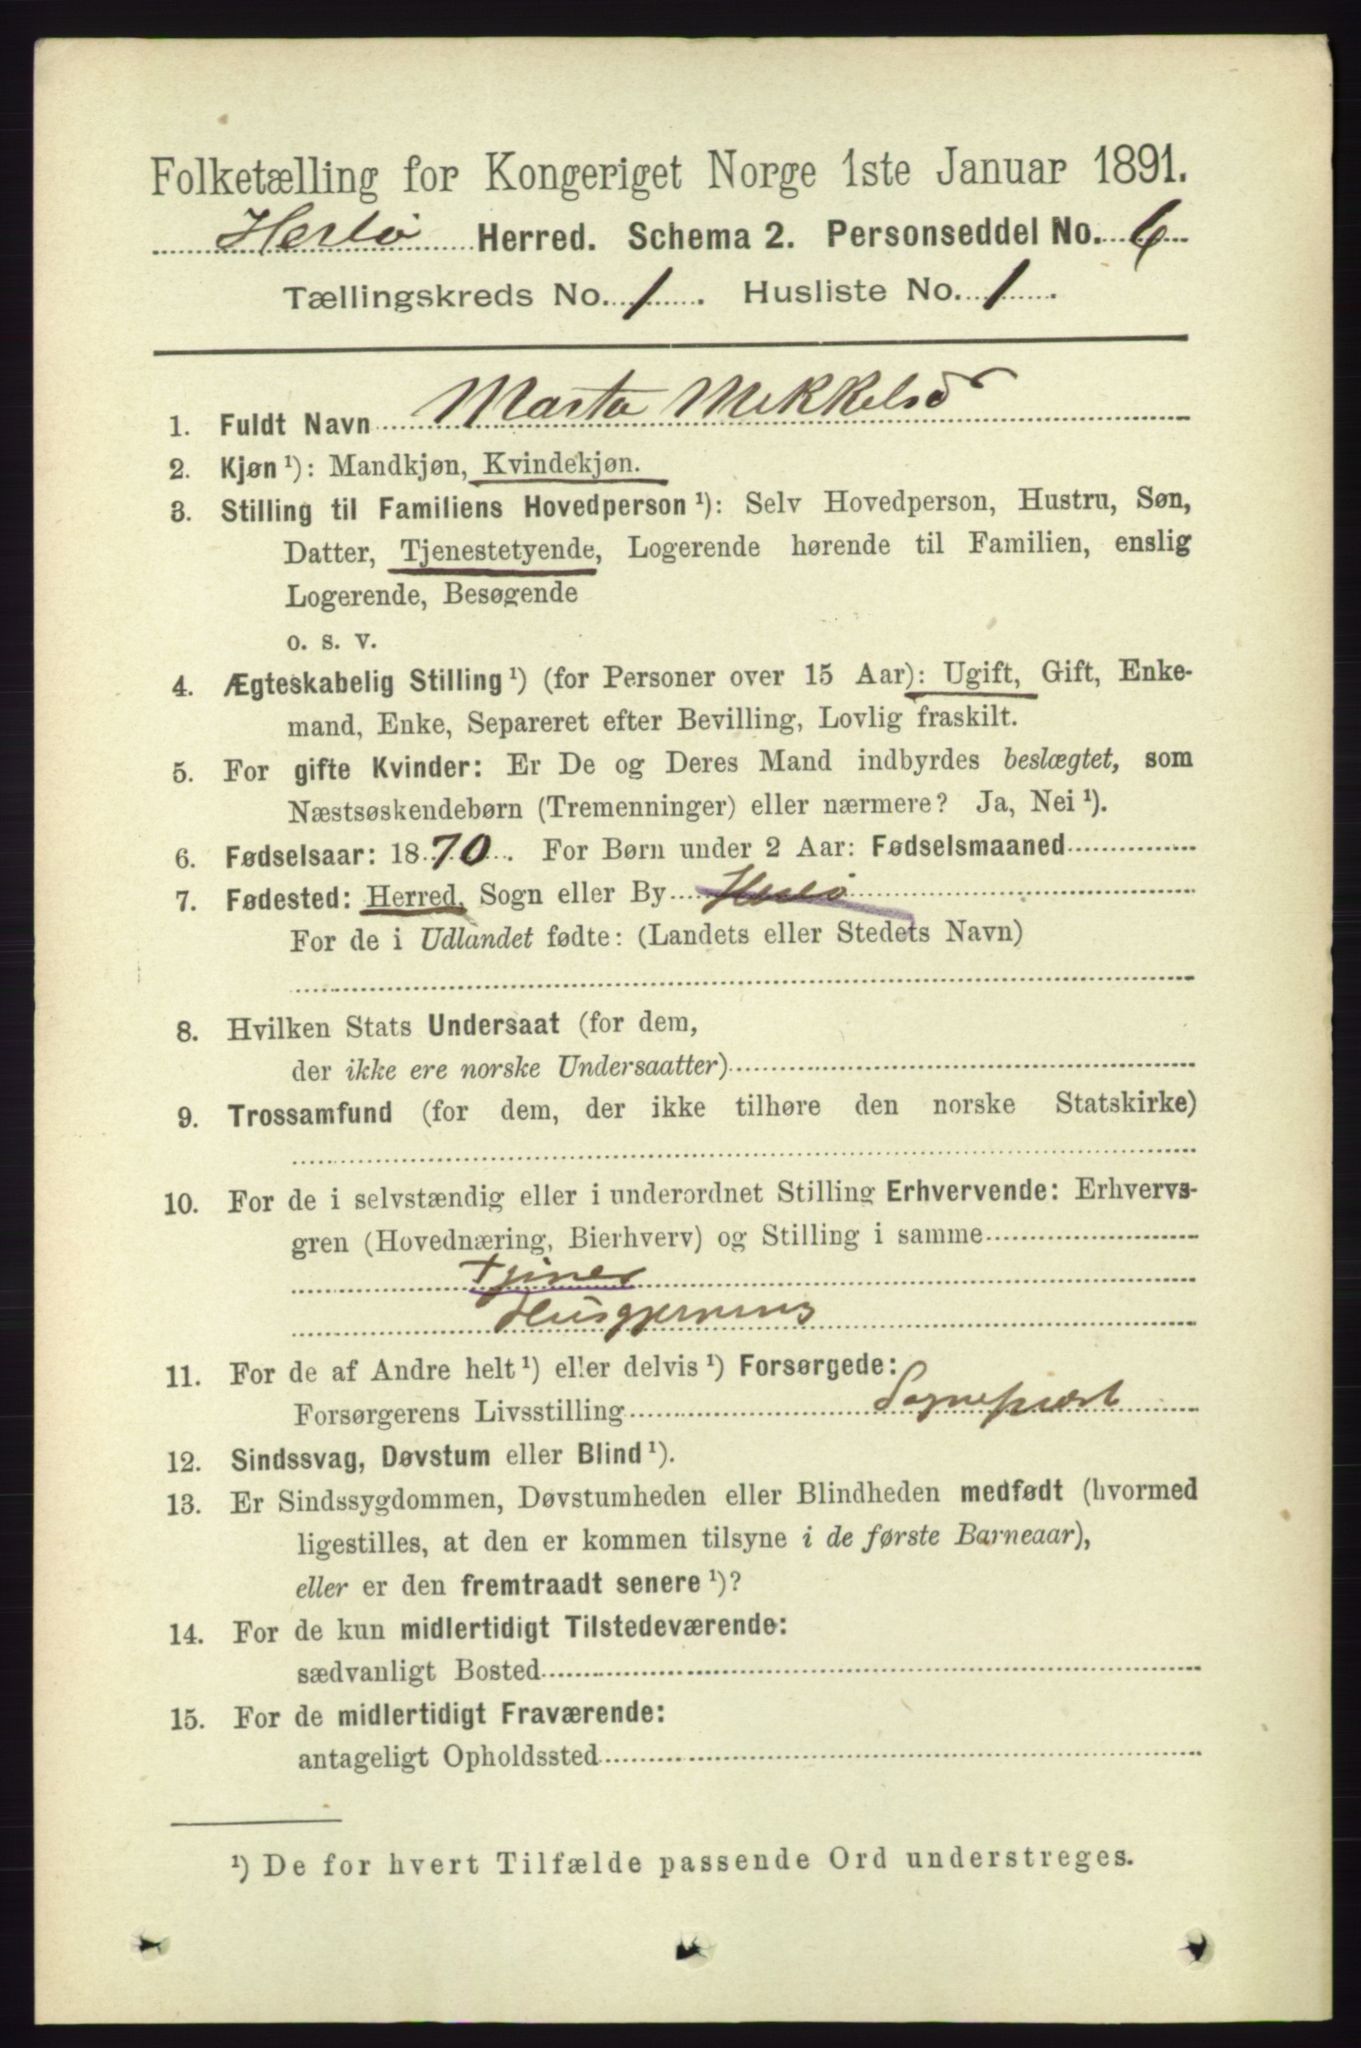 Folketælling for Kongeriget Norge 1ste Januar 1891.
Herlø Herred. Schema 2. Personseddel No. 6
Tællingskreds No. 1. Husliste No. 1.
1. Fuldt Navn Marta Mikkelsd
2. Kjøn ¹): Mandkjøn, Kvindekjøn.
3. Stilling til Familiens Hovedperson ¹): Selv Hovedperson, Hustru, Søn,
Datter, Tjenestetyende, Logerende hørende til Familien, enslig
Logerende, Besøgende
o. s. v.
4. Ægteskabelig Stilling ¹) (for Personer over 15 Aar): Ugift, Gift, Enke-
mand, Enke, Separeret efter Bevilling, Lovlig fraskilt.
5. For gifte Kvinder: Er De og Deres Mand indbyrdes beslægtet, som
Næstsøskendebørn (Tremenninger) eller nærmere? Ja, Nei ¹).
6. Fødselsaar: 1870. For Børn under 2 Aar: Fødselsmaaned
7. Fødested: Herred, Sogn eller By Herlø
For de i Udlandet fødte: (Landets eller Stedets Navn)
8. Hvilken Stats Undersaat (for dem,
der ikke ere norske Undersaatter)
9. Trossamfund (for dem, der ikke tilhøre den norske Statskirke)
10. For de i selvstændig eller i underordnet Stilling Erhvervende: Erhvervs-
gren (Hovednæring, Bierhverv) og Stilling i samme
Tjener
Husgjerning
11. For de af Andre helt ¹) eller delvis ¹) Forsørgede:
Forsørgerens Livsstilling Sognepræst
12. Sindssvag, Døvstum eller Blind ¹).
13. Er Sindssygdommen, Døvstumheden eller Blindheden medfødt (hvormed
ligestilles, at den er kommen tilsyne i de første Barneaar),
eller er den fremtraadt senere ¹)?
14. For de kun midlertidigt Tilstedeværende:
sædvanligt Bosted
15. For de midlertidigt Fraværende:
antageligt Opholdssted
¹) De for hvert Tilfælde passende Ord understreges.